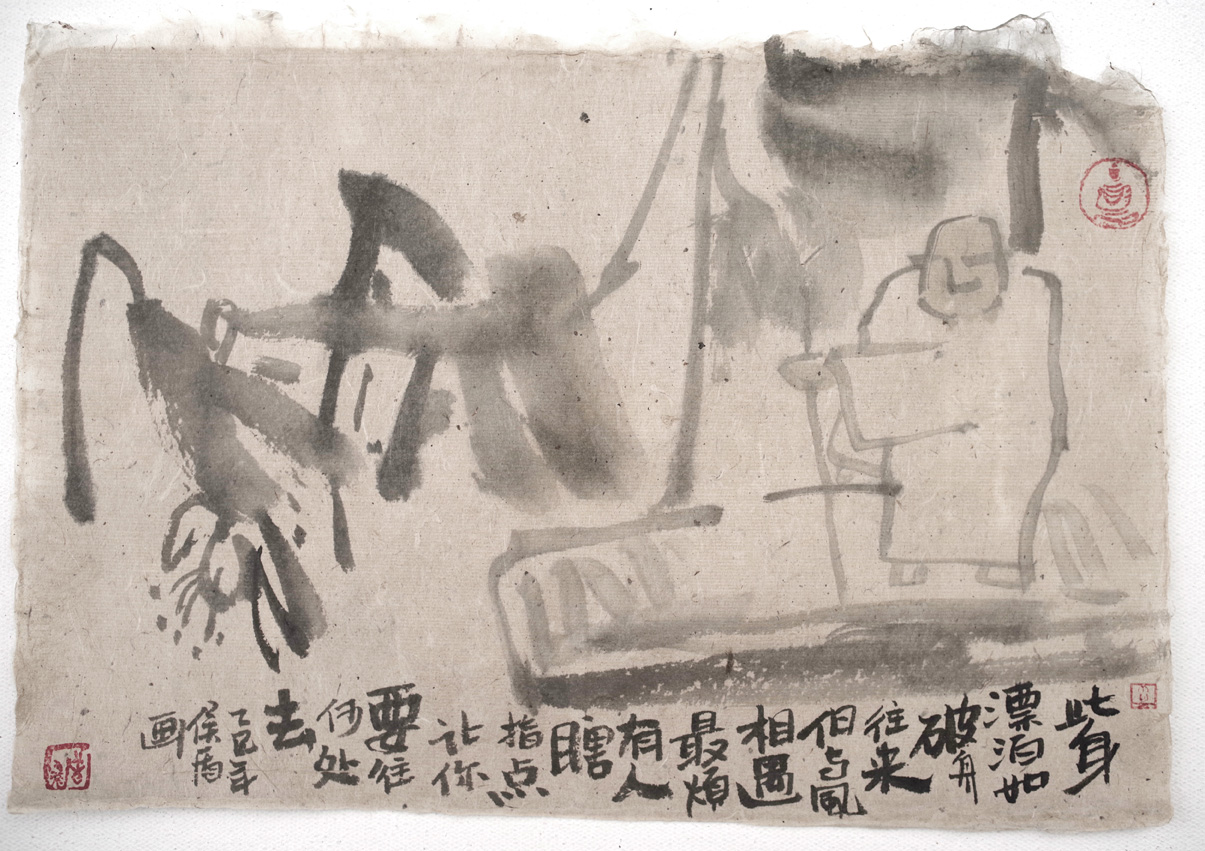 此身
漂泊如
破舟
往来
但与風
相遇
最煩
有人
瞎
指点
让你
要往
何处
去
乙巳年
侯
画